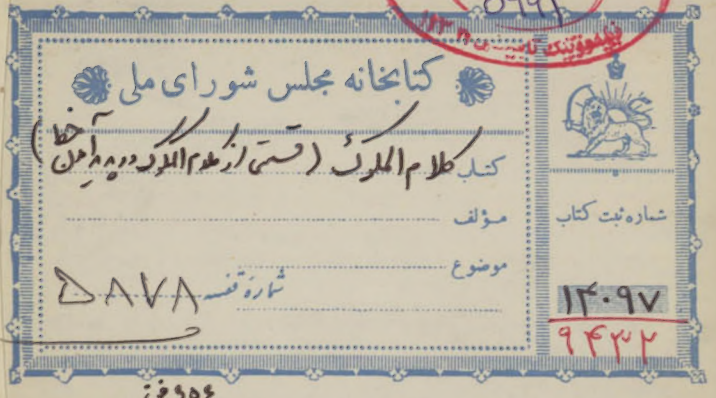 کتابخانه مجلس شورای ملی
کتاب کلام الملوک (قسمتی از کلام الملوک
مؤلف
موضوع
شماره قفسه ۵۸۷۸
شماره ثبت کتاب
۱۴۰۹۷
۹۴۳۲